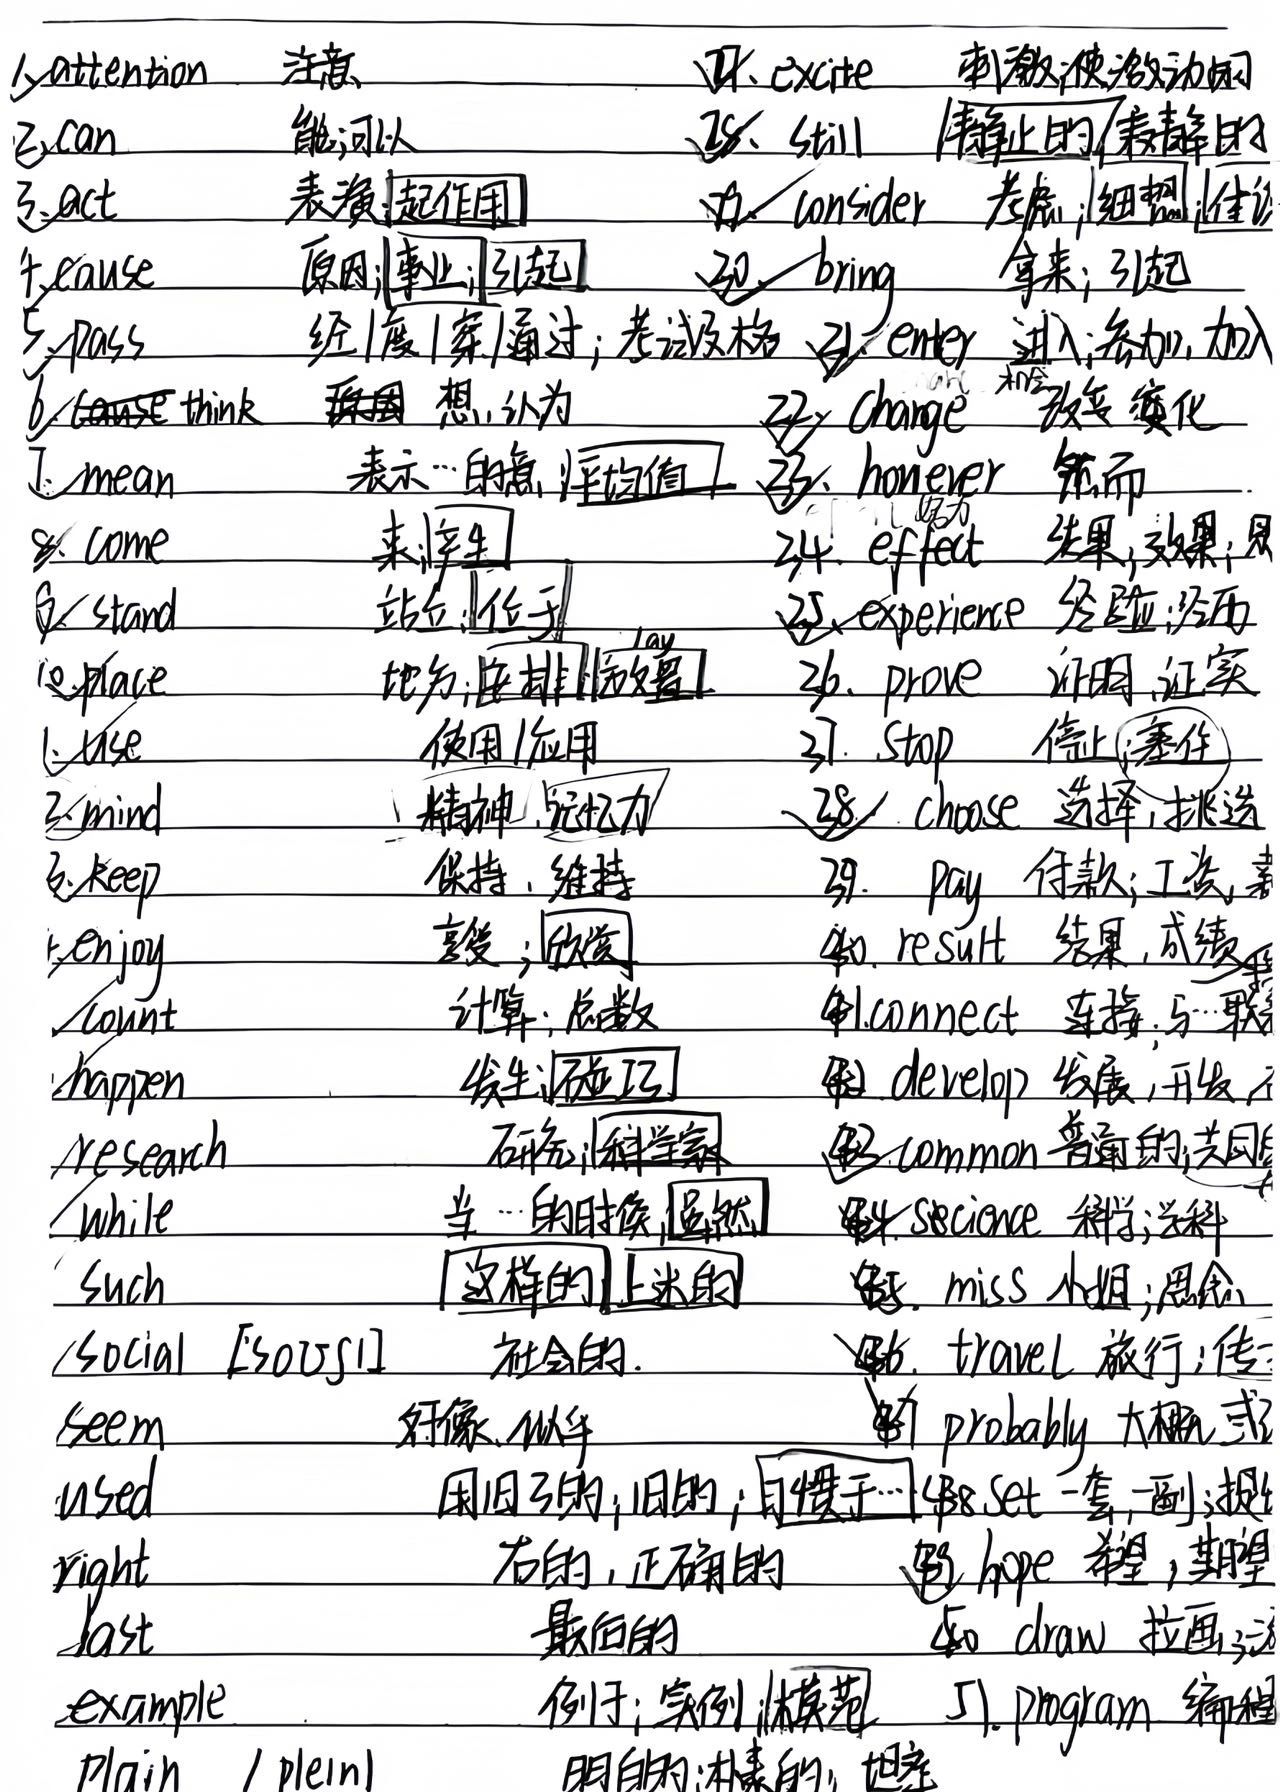 1. attention 注意
2. can 能;可以
3. act 表演;起作用
4. cause 原因;事业;引起
5. pass 经/度/穿/通过;考试及格
6. cause think 原因 想,认为
7. mean 表示…的意;平均值
8. come 来;产生
9. stand 站立;位于
lay
10. place 地方;安排;放置
1. use 使用/应用
2. mind 精神,记忆力
3. keep 保持,维持
enjoy 享受;欣赏
count 计算;总数
happen 发生;碰巧
research 研究;科学家
while 当…的时候,虽然
such 这样的 上述的
social [soʊʃl] 社会的.
seem 好像、似乎
used 用旧了的;旧的;习惯于…
right 右的,正确的
last 最后的
example 例子;实例;模范
plain /plein/ 明白的;朴素的;坦率
excite 刺激;使激动的
28. still 静止的/寂静的
consider 考虑;细想;
30. bring 拿来;引起
31. enter 进入;参加,加入
机会
change 改变 变化
33. however 然而
努力
34. effect 结果;效果;
35. experience 经验;经历
36. prove 证明,证实
37. stop 停止;塞住
38. choose 选择,挑选
39. pay 付款;工资,薪
40. result 结果,成绩
41. connect 连接;与…联系
42. develop 发展,开发,
43. common 普通的;共同
44. secience 科学;学科
45. miss 小姐;思念
46. travel 旅行;传
47 probably 大概 或
48 set 一套,一副;提出
49 hope 希望,期望
50 draw 拉画;
51. program 编程